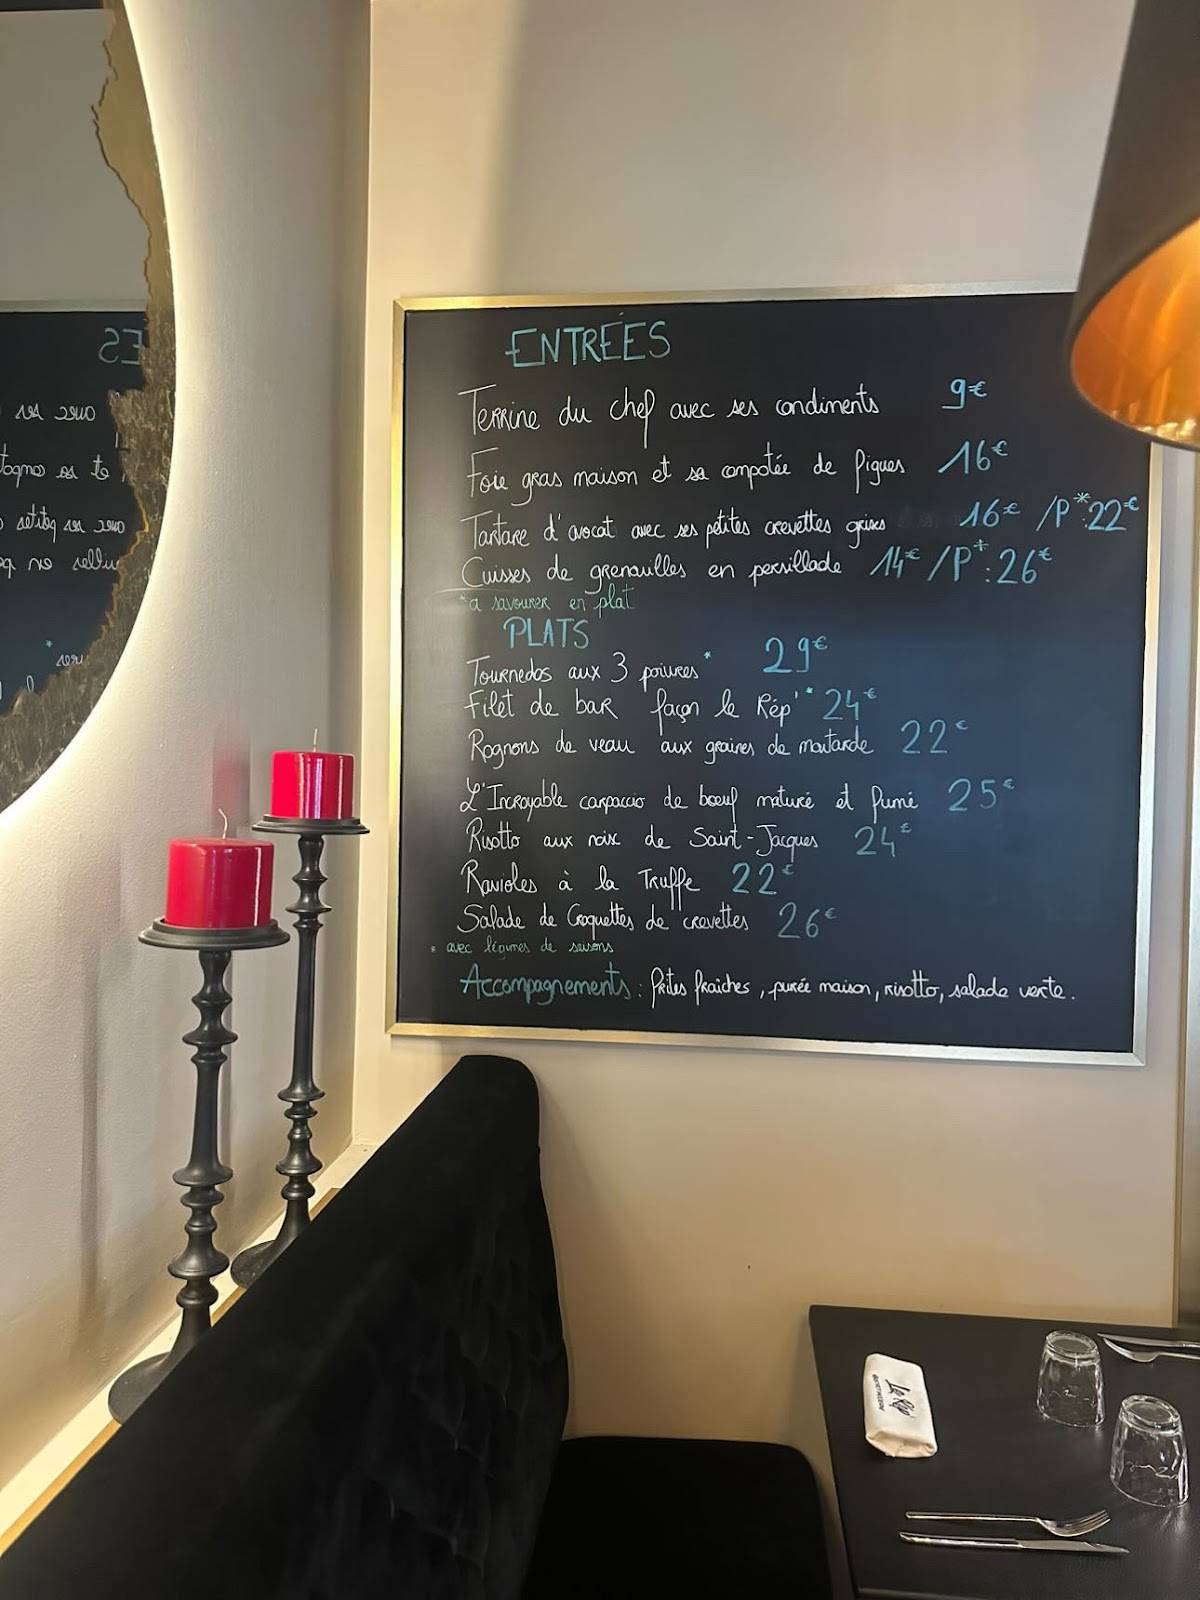 ENTRÉES
Terrine du chef avec ses condiments 9€
Foie gras maison et sa compotée de figues 16€
Tartare d'avocat avec ses petites crevettes grises 16€ /P*:22€
Cuisses de grenouilles en persillade 14€ /P*:26€
*a savourer en plat
PLATS
Tournedos aux 3 poivres* 29€
Filet de bar façon le Rép'* 24€
Rognons de veau aux graines de moutarde 22€
L'Incroyable carpaccio de bœuf maturé et fumé 25€
Risotto aux noix de Saint-Jacques 24€
Ravioles à la Truffe 22€
Salade de Croquettes de crevettes 26€
* avec légumes de saisons
Accompagnements : frites fraîches, purée maison, risotto, salade verte.
Le Rép'